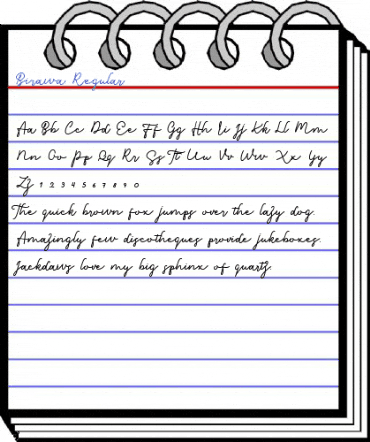 Birawa Regular
Aa Bb Cc Dd Ee Ff Gg Hh Ii Jj Kk Ll Mm
Nn Oo Pp Qq Rr Ss Tt Uu Vv Ww Xx Yy
Zz 1 2 3 4 5 6 7 8 9 0
The quick brown fox jumps over the lazy dog.
Amazingly few discotheques provide jukeboxes.
Jackdaws love my big sphinx of quartz.